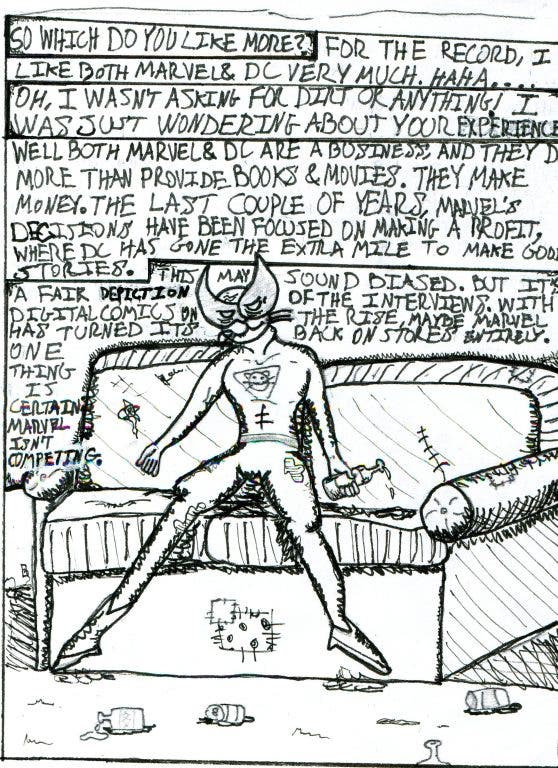 SO WHICH DO YOU LIKE MORE? FOR THE RECORD, I
LIKE BOTH MARVEL & DC VERY MUCH. HAHA....
OH, I WASN'T ASKING FOR DIRT OR ANYTHING! I
WAS JUST WONDERING ABOUT YOUR EXPERIENCE
WELL BOTH MARVEL & DC ARE A BUSINESS, AND THEY D
MORE THAN PROVIDE BOOKS & MOVIES. THEY MAKE
MONEY. THE LAST COUPLE OF YEARS, MARVEL'S
DECISIONS HAVE BEEN FOCUSED ON MAKING A PROFIT,
WHERE DC HAS GONE THE EXTRA MILE TO MAKE GOOD
STORIES.
THIS MAY SOUND BIASED. BUT IT'S
A FAIR DEPICTION OF THE INTERVIEWS. WITH
DIGITAL COMICS ON THE RISE, MAYBE MARVEL
HAS TURNED ITS BACK ON STORES ENTIRELY.
ONE
THING
IS
CERTAIN
MARVEL
ISN'T
COMPETING.